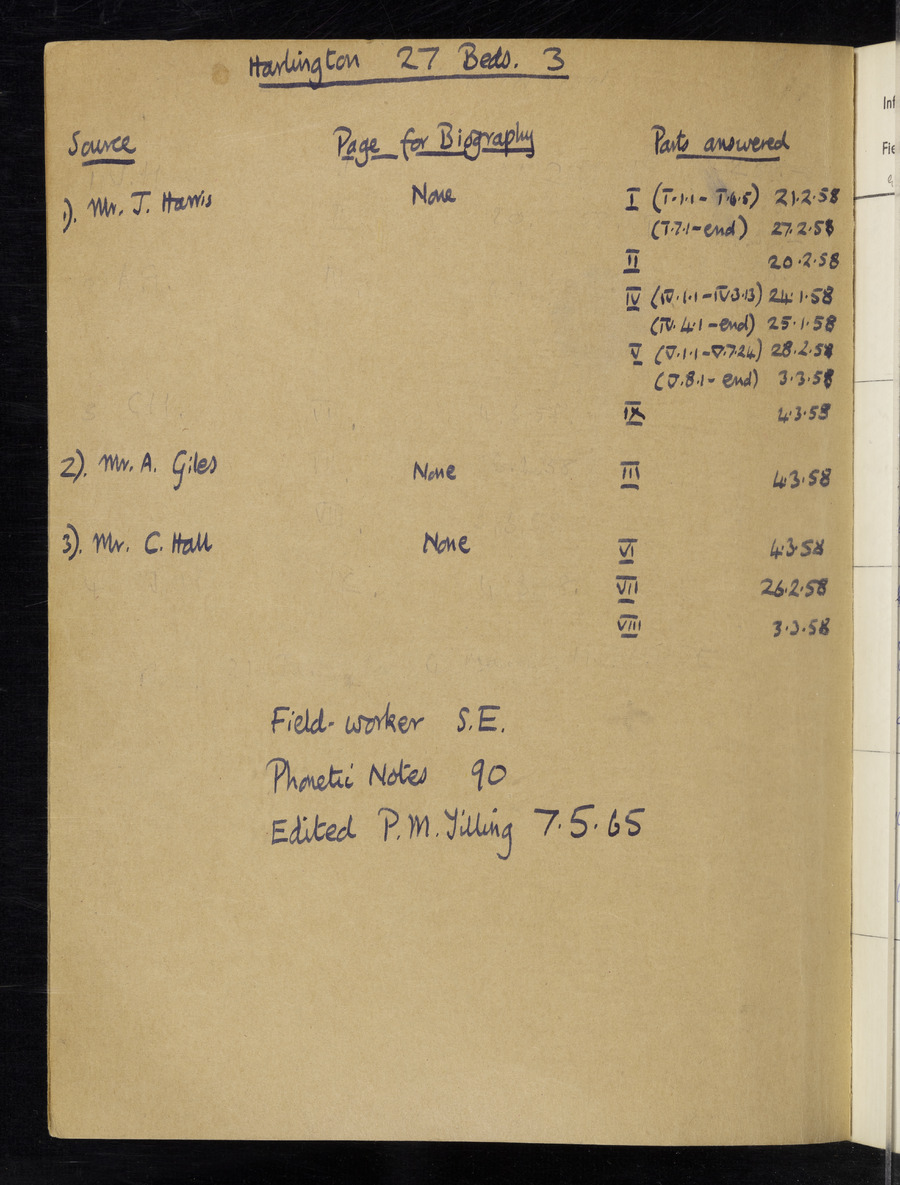 Harlington 27 Beds. 3
Source Page for Biography Parts answered
1). Mr. J. Harris None I (I.1.1 - I.6.5) 21.2.58
(I.7.1 - end) 27.2.58
II 20.2.58
IV (IV.1.1 - IV.3.13) 24.1.58
(IV.4.1 - end) 25.1.58
V (V.1.1 - V.7.24) 28.2.58
(V.8.1 - end) 3.3.58
IX 4.3.58
2). Mr. A. Giles None III 4.3.58
3). Mr. C. Hall None VI 4.3.58
VII 26.2.58
VIII 3.3.58
Field-worker S.E.
Phonetic Notes 90
Edited P.M. Tilling 7.5.65
Inf
Fie